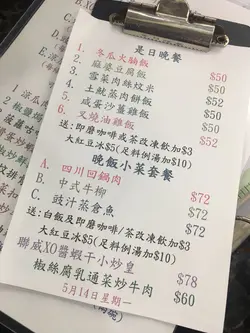 是日晚餐
1. 冬瓜火腩飯 $50
2. 麻婆豆腐飯 $50
3. 雪菜肉絲炆米 $50
4. 土魷蒸肉餅飯 $52
5. 咸蛋沙薑雞飯 $50
6. 叉燒油雞飯 $52
送:即磨咖啡或茶改凍飲加$3
大紅豆冰$5(足料例湯加$10)
晚飯小菜套餐
A. 四川回鍋肉 $72
B. 中式牛柳 $72
C. 豉汁蒸倉魚 $72
送:白飯及即磨咖啡/茶改凍飲加$3
大紅豆冰$5(足料例湯加$10)
聯威XO醬蝦干小炒皇 $78
椒絲腐乳通菜炒牛肉 $60
5月14日星期一